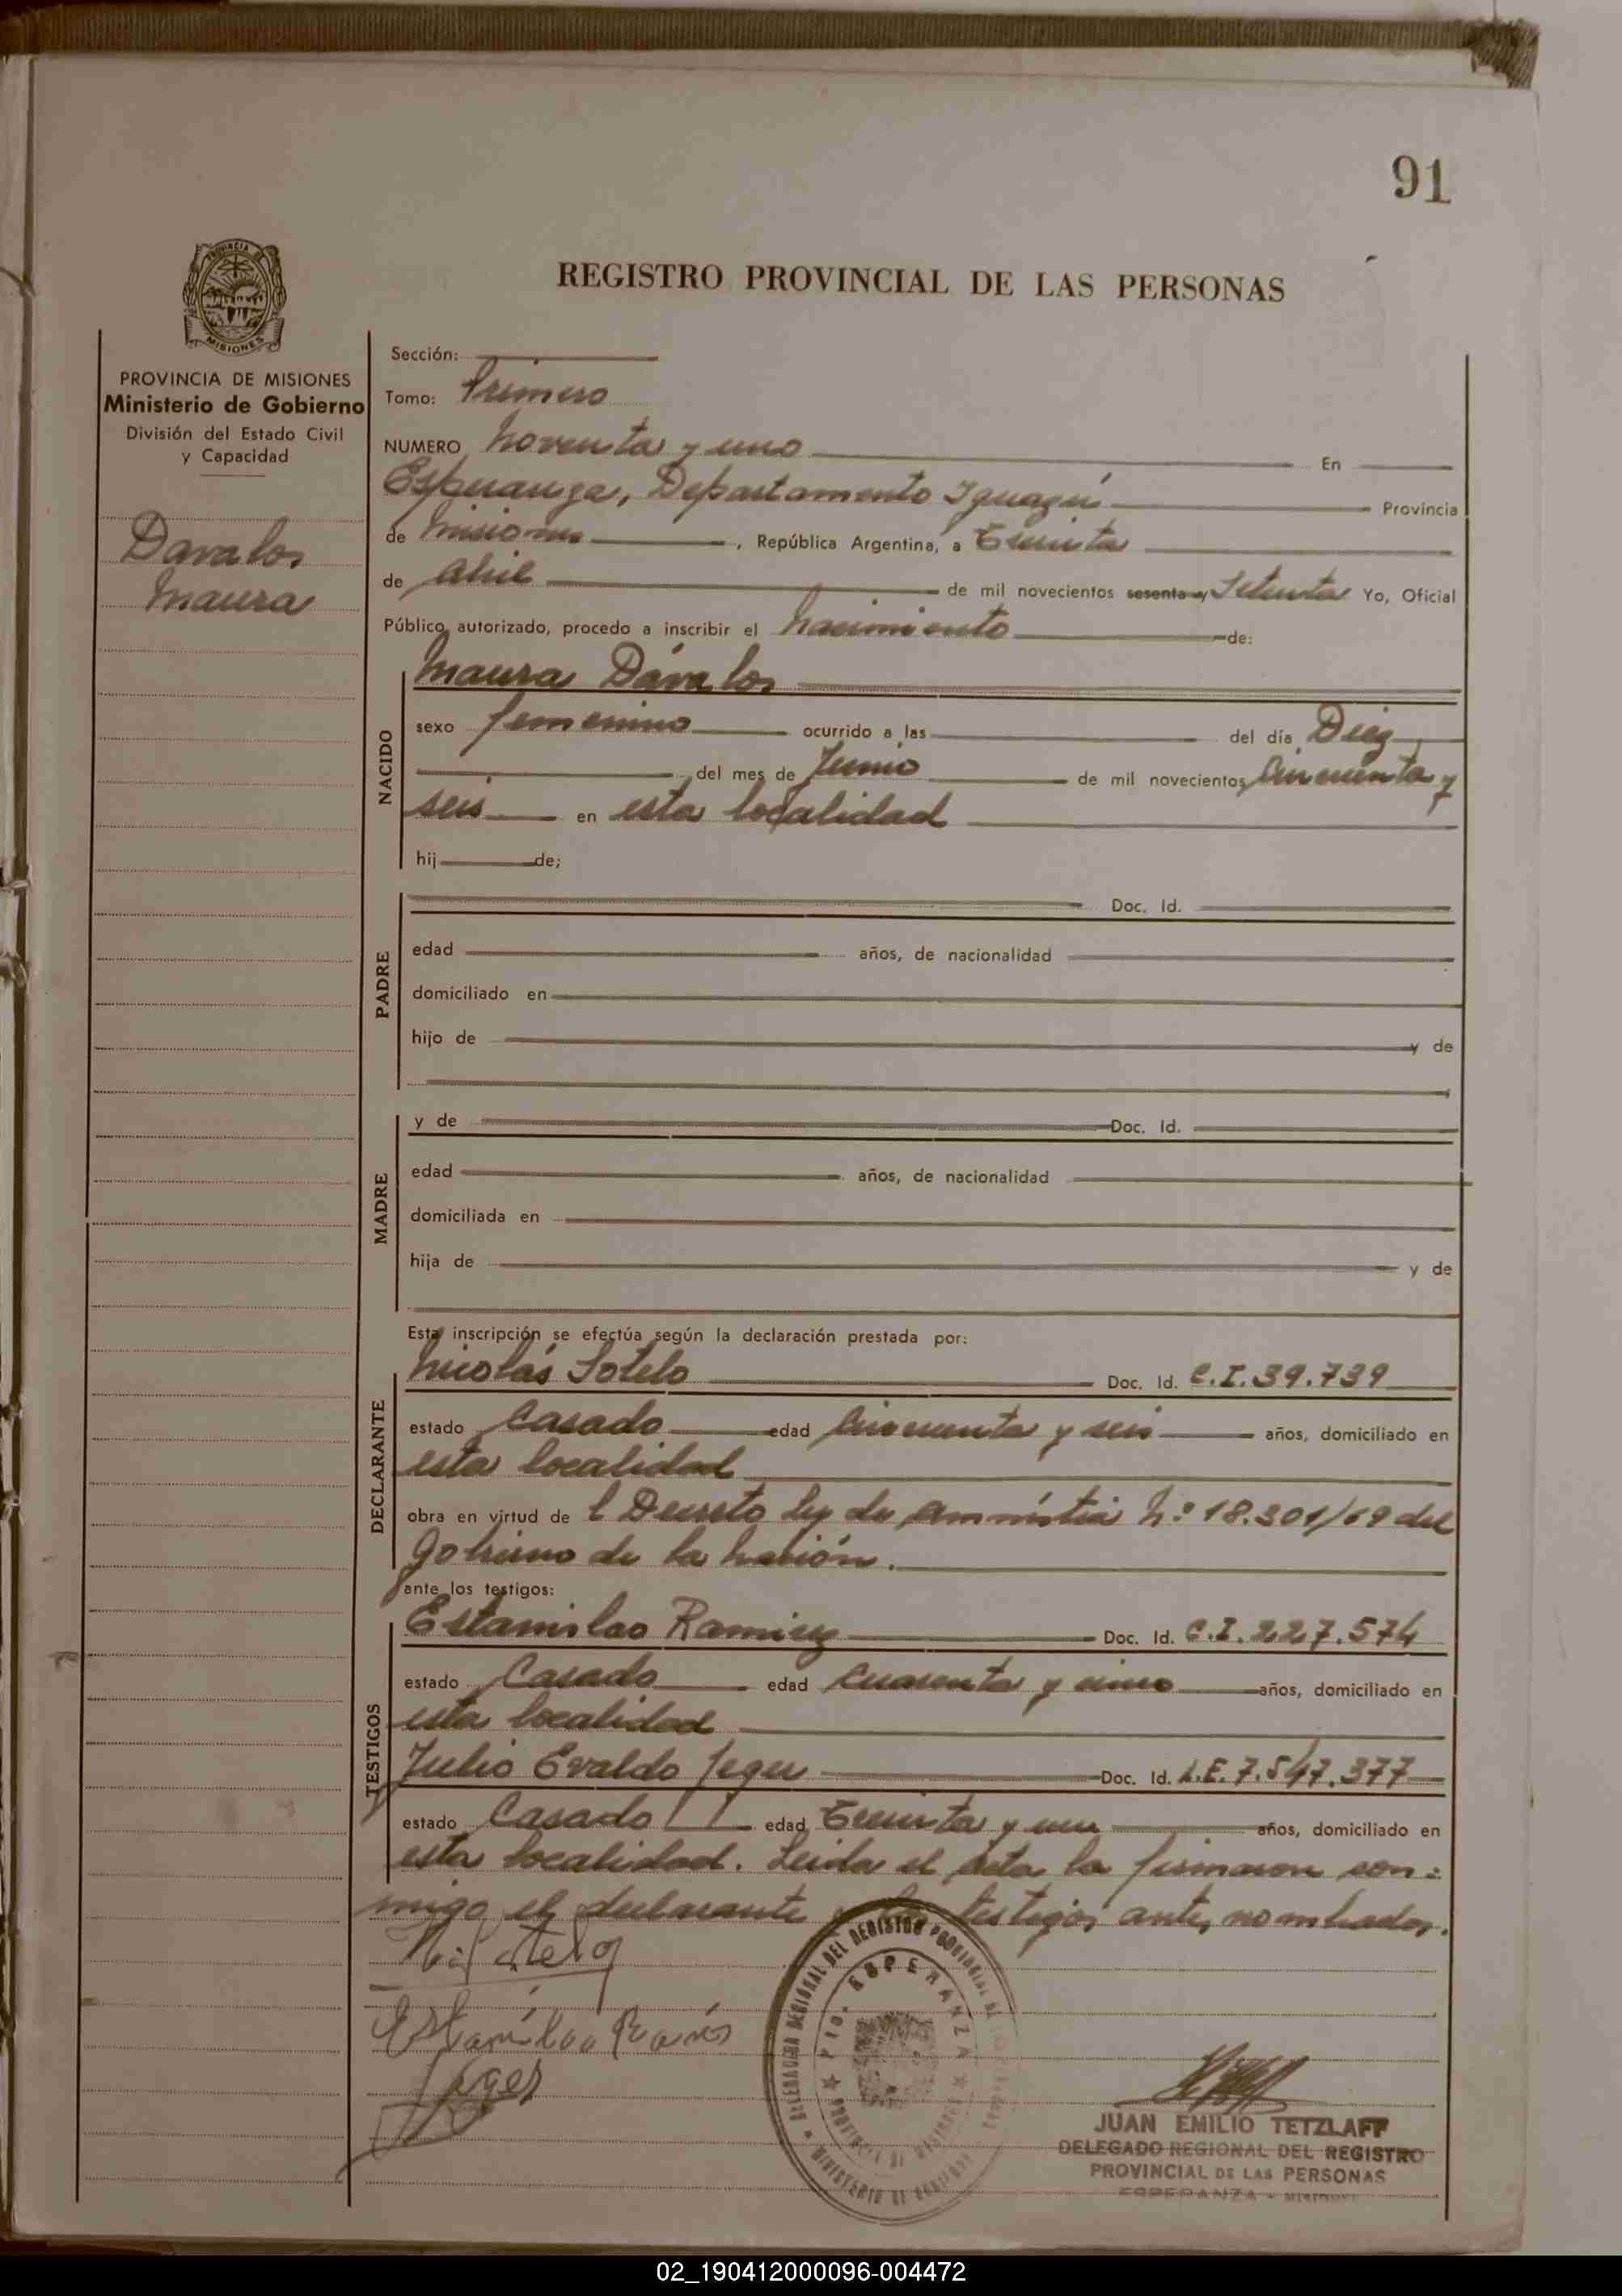 91
REGISTRO PROVINCIAL DE LAS PERSONAS
PROVINCIA
MISIONES
PROVINCIA DE MISIONES
Ministerio de Gobierno
División del Estado Civil
y Capacidad
Davalos
Maura
Sección:
Tomo: Primero
NUMERO noventa y uno En
Esperanza, Departamento Iguazú Provincia
de Misiones, República Argentina, a Treinta
de Abril de mil novecientos sesenta y Setenta Yo, Oficial
Público autorizado, procedo a inscribir el nacimiento de:
NACIDO
Maura Dávalos
sexo femenino ocurrido a las del día Diez
del mes de Junio de mil novecientos Cincuenta y
seis en esta localidad
hij de;
PADRE
Doc. Id.
edad años, de nacionalidad
domiciliado en
hijo de y de
MADRE
y de Doc. Id.
edad años, de nacionalidad
domiciliada en
hija de y de
Esta inscripción se efectúa según la declaración prestada por:
DECLARANTE
Nicolás Sotelo Doc. Id. C.I. 39.739
estado Casado edad Cincuenta y seis años, domiciliado en
esta localidad
obra en virtud de l Decreto Ley de Amnistia N.º 18.301/69 del
Gobierno de la Nación.
ante los testigos:
TESTIGOS
Estanislao Ramirez Doc. Id. C.I. 227.574
estado Casado edad Cuarenta y cinco años, domiciliado en
esta localidad
Julio Evaldo Jeger Doc. Id. L.E. 7.547.377
estado Casado edad Treinta y un años, domiciliado en
esta localidad. Leida el Acta la firmaron con=
migo el declarante y los testigos ante nombrados.
DELEGACION REGIONAL DEL REGISTRO PROVINCIAL DE
PTO. ESPERANZA
PROVINCIA DE MISIONES
MINISTERIO DE GOBIERNO
Jeger
JUAN EMILIO TETZLAFF
DELEGADO REGIONAL DEL REGISTRO
PROVINCIAL DE LAS PERSONAS
ESPERANZA - MISIONES
02_190412000096-004472